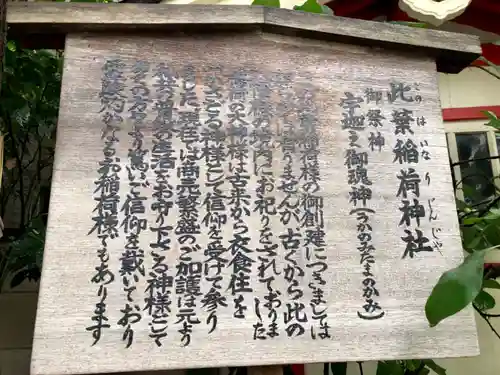 此葉稲荷神社
このはいなりじんじゃ
御祭神
宇迦之御魂神(うかのみたまのかみ)
稲荷様の御創建につきましては
は有りませんが、古くから此の
の境内にお祀りをされておりました
稲荷の大神様は古来から衣食住を
つかさどる神様として信仰を受けて参り
ました。現在では商売繁盛のご加護は元より
の生活をお守り下さる神様として
多くの方々より篤い信仰を戴いており
霊験灼かなるお稲荷様でもあります